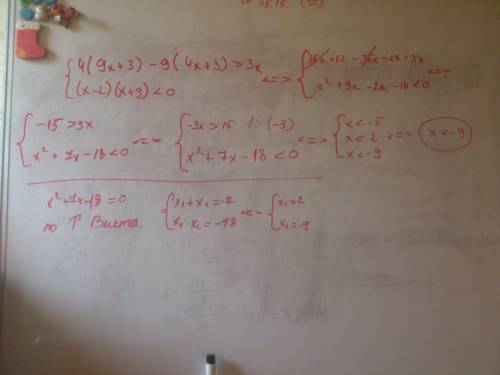 { 4(9x+3) - 9(4x+3) > 3x
(x-2)(x+9) < 0 <=> { 36x+12 - 36x-27 > 3x
x² + 9x - 2x - 18 < 0 <=>
{ -15 > 3x
x² + 7x - 18 < 0 <=> { -3x > 15 |:(-3)
x² + 7x - 18 < 0 <=> { x < -5
x < 2
x < -9 <=> x < -9
x² + 7x - 18 = 0
по Т Виета. { x₁ + x₂ = -7
x₁ · x₂ = -18 <=> { x₁ = 2
x₂ = -9